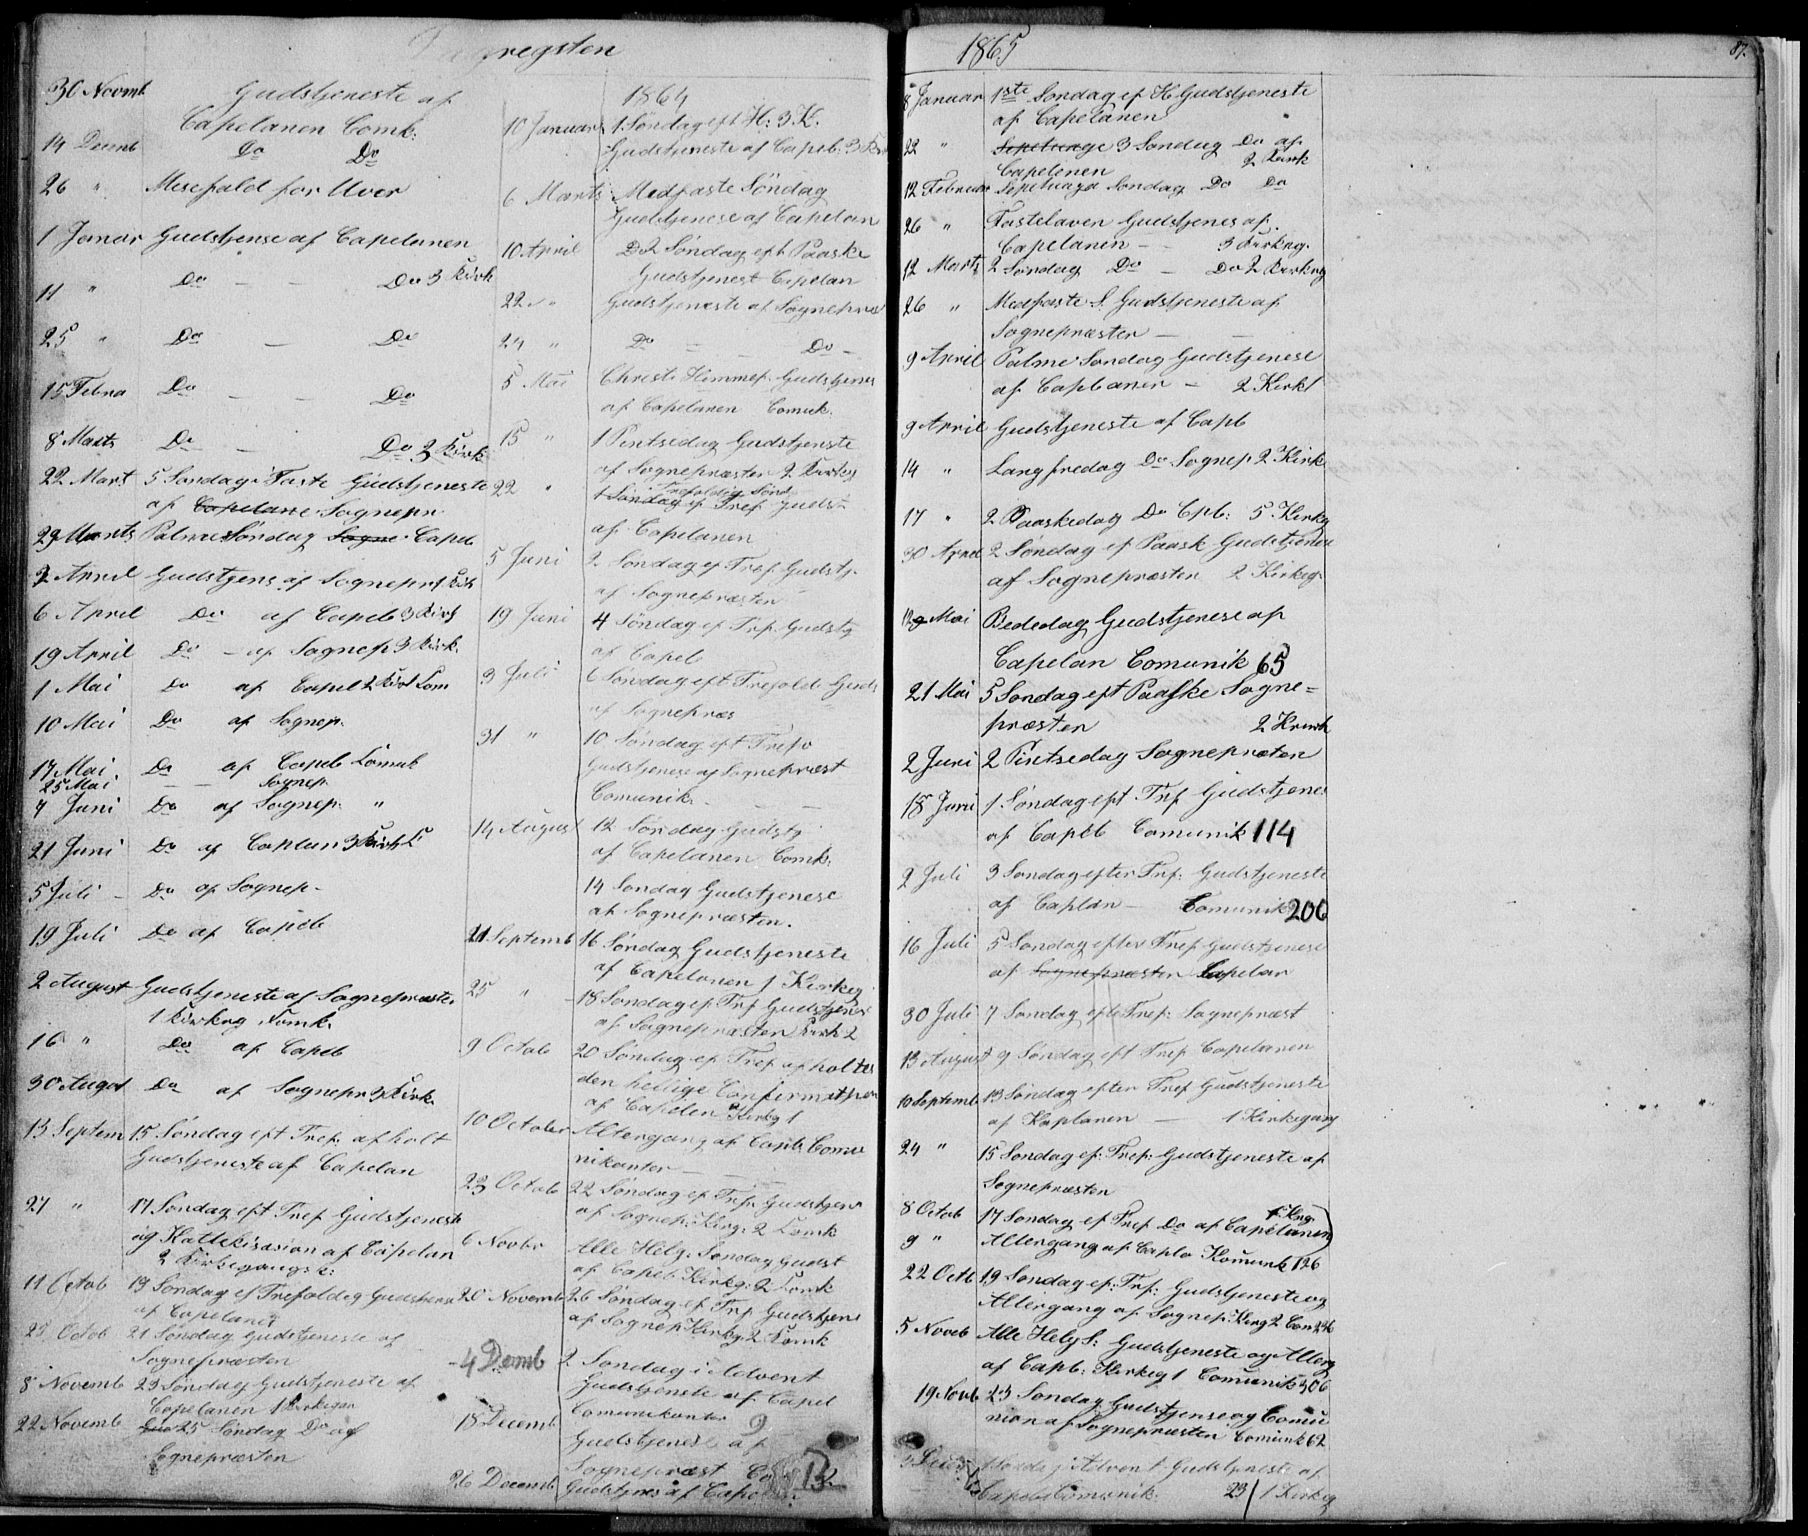 Dagregsten
30 Novmb Gudstjeneste af
Capelanen Comk:
14 Decmb Do Do
26 " Messefald for Uver
1 Januar Gudstjense af Capelanen
11 " Do - - Do 3 Kirk
25 " Do - Do
15 Febru Do - - Do
8 Marts Do - Do 2 Kirk
22 Mart 5 Søndag i Faste Gudstjeneste
af Capelane Sognepr
29 Marts Palmesøndag Sogne Capeb
2 April Gudstjens af Sognepr 1 Kirk
6 April Do af Capeb 3 Kirk
19 April Do - af Sognep 3 Kirk.
1 Mai Do af Capel 2 Kirk Com
10 Mai Do af Sognep.
17 Mai. Do af Capeb Comuk
25 Mai - - Sognep.
7 Juni Do af Sognep. "
21 Juni Do af Caplan 3 Kirk C
5 Juli - Do af Sognep-
19 Juli Do af Capeb
2 August Gudstjeneste af Sognepræsten
1 Kirkeg Komk.
16 " Do af Capeb
30 Augst Do af Sognepr 3 Kirk.
13 Septem 15 Søndag eft Tref. afholt
Gudstjeneste af Capelan
27 " 17 Søndag eft Tref Gudstjeneste
og Kattekisasion af Capelan
2 Kirkegangsk:
11 Octob 19 Søndag ef Trefoldig Gudstjense
af Capelanen
25 Octob 21 Søndag Gudstjeneste af
Sognepræsten
8 Novemb 23 Søndag Gudstjeneste af
Capelanen 1 Kirkegan
22 Novemb Gud 25 Søndag Do af
Sognepræsten
1864
10 Januar 1 Søndag eft H: 3 K.
Gudstjeneste af Capeb: 3 Kir
6 Marts Midfaste Søndag
Gudstjenese af Capelan
10 April Do 2 Søndag eft Paaske
Gudstjenest Capelan
22 " Gudstjeneste af Sognepræs
24 " Do - - Do -
5 Mai Christi Himmef. Gudstjenes
af Capelanen Comuk.
15 " 1 Pintsedag Gudstjenste
af Sognepræsten 2 Kirkeg
22 " Trefoldig Sønd
1 Søndag ef Tref Gudst-
af Capelanen
5 Juni 2 Søndag ef Tref. Gudstj.
af Sognepræsten
19 Juni 4 Søndag ef Tref. Gudstj
af Capeb
3 Juli 6 Søndag eft Trefold. Guds
af Sognepræs
31 " 10 Søndag eft Trefo
Gudstjenese af Sognepræst
Comunik. - - -
14 August 12 Søndag Gudstj
af Capelanen Comk.
14 Søndag Gudstjenese
af Sognepræsten.
11 Septemb 16 Søndag Gudstjeneste
af Capelanen 1 Kirkeg
25 " 18 Søndag ef Tref Gudstjenes
af Sognepræsten Kirk 2
9 Octob 20 Søndag ef Tref afholtes
den hellige Confirmatjon
af Capelen Kirkg 1
10 October Altergang af Capb Comu
nikanter - -
23 Octob 22 Søndag ef Tref. Gudstjens
af Sognep. Kirkg: 2 Komk
6 Novbr Alle Helg. Søndag Gudst
af Capeb Kirkg: 2 Komk
20 Novemb 26 Søndag ef Tref Gudstjens
af Sognep Kirkg 2 Komk
4 Decmb 2 Søndag i Advent
Gudstjenste af Capel
Comunikanter 9
18 Decemb Gudstjenese af
Sognepræst Co 132
26 Decemb Gudstjenes af Cape
1865
87.
8 Januar 1ste Søndag ef H Gudstjeneste
af Capelanen
22 " Sepetuage 3 Søndag Do af
Capelenen 2 Kirk
12 Februar Sepetuaga Søndag Do Do
26 " Fastelaven Gudstjenes af.
Capelanen - - 3 Kirkeg.
12 Marts 2 Søndag Do - Do 2 Kirkeg
26 " Midfaste S. Gudstjeneste af
Sognepræsten - -
9 April Palme Søndag Gudstjenese
af Capbanen - 2 Kirk1
9 April Gudstjeneste af Capb
14 " Langfredag Do Sognep 2 Kirk
17 " 2 Paaskedag Do Cpb: 5 Kirkg
30 April 2 Søndag ef Paask Gudstjenes
af Sognepræsten 2 Kirkeg.
12 Mai Bededag Gudstjenese af
Capelan Comunik 65
21 Mai 5 Søndag eft Paaske Sogne=
præsten 2 Krirk
2 Juni 2 Pintsedag Sognepræten
18 Juni 1 Søndag eft Tref Gudstjenes
af Capeb Comunik 114
2 Juli 3 Søndag efter Tref: Gudstjeneste
af Caplan - Comunik 206
16 Juli 5 Søndag efter Tref Gudstjenese
af Sognepræsten Capelan
30 Juli 7 Søndag efte Tref: Sognepræst
13 August 9 Søndag eft Tref Capelanen
10 Septemb 13 Søndag efter Tref Gudstjeneste
af Kaplanen - 1 Kirkegang
24 " 15 Søndag ef: Tref: Gudstjeneste af
Sognepræsten
8 Octob 17 Søndag ef Tref Do af Capelanen 1 Kng.
9 " Altergang af Capla Komunk 126
22 Octb 19 Søndag ef: Tref: Gudstjeneste og
Altergang af Sognep. Kirg 2 Com 246
5 Noveb Alle Helg S: Gudstjeneste og Alterg
af Capb: Kirkeg 1 Comunik 306
19 Novb 23 Søndag Gudstjense og Comu
nion af Sognepræsten Comunk 62
Søndag i Advent Gudstjeneste af
Capeb Comunik. 23 / 1 Kirkeg